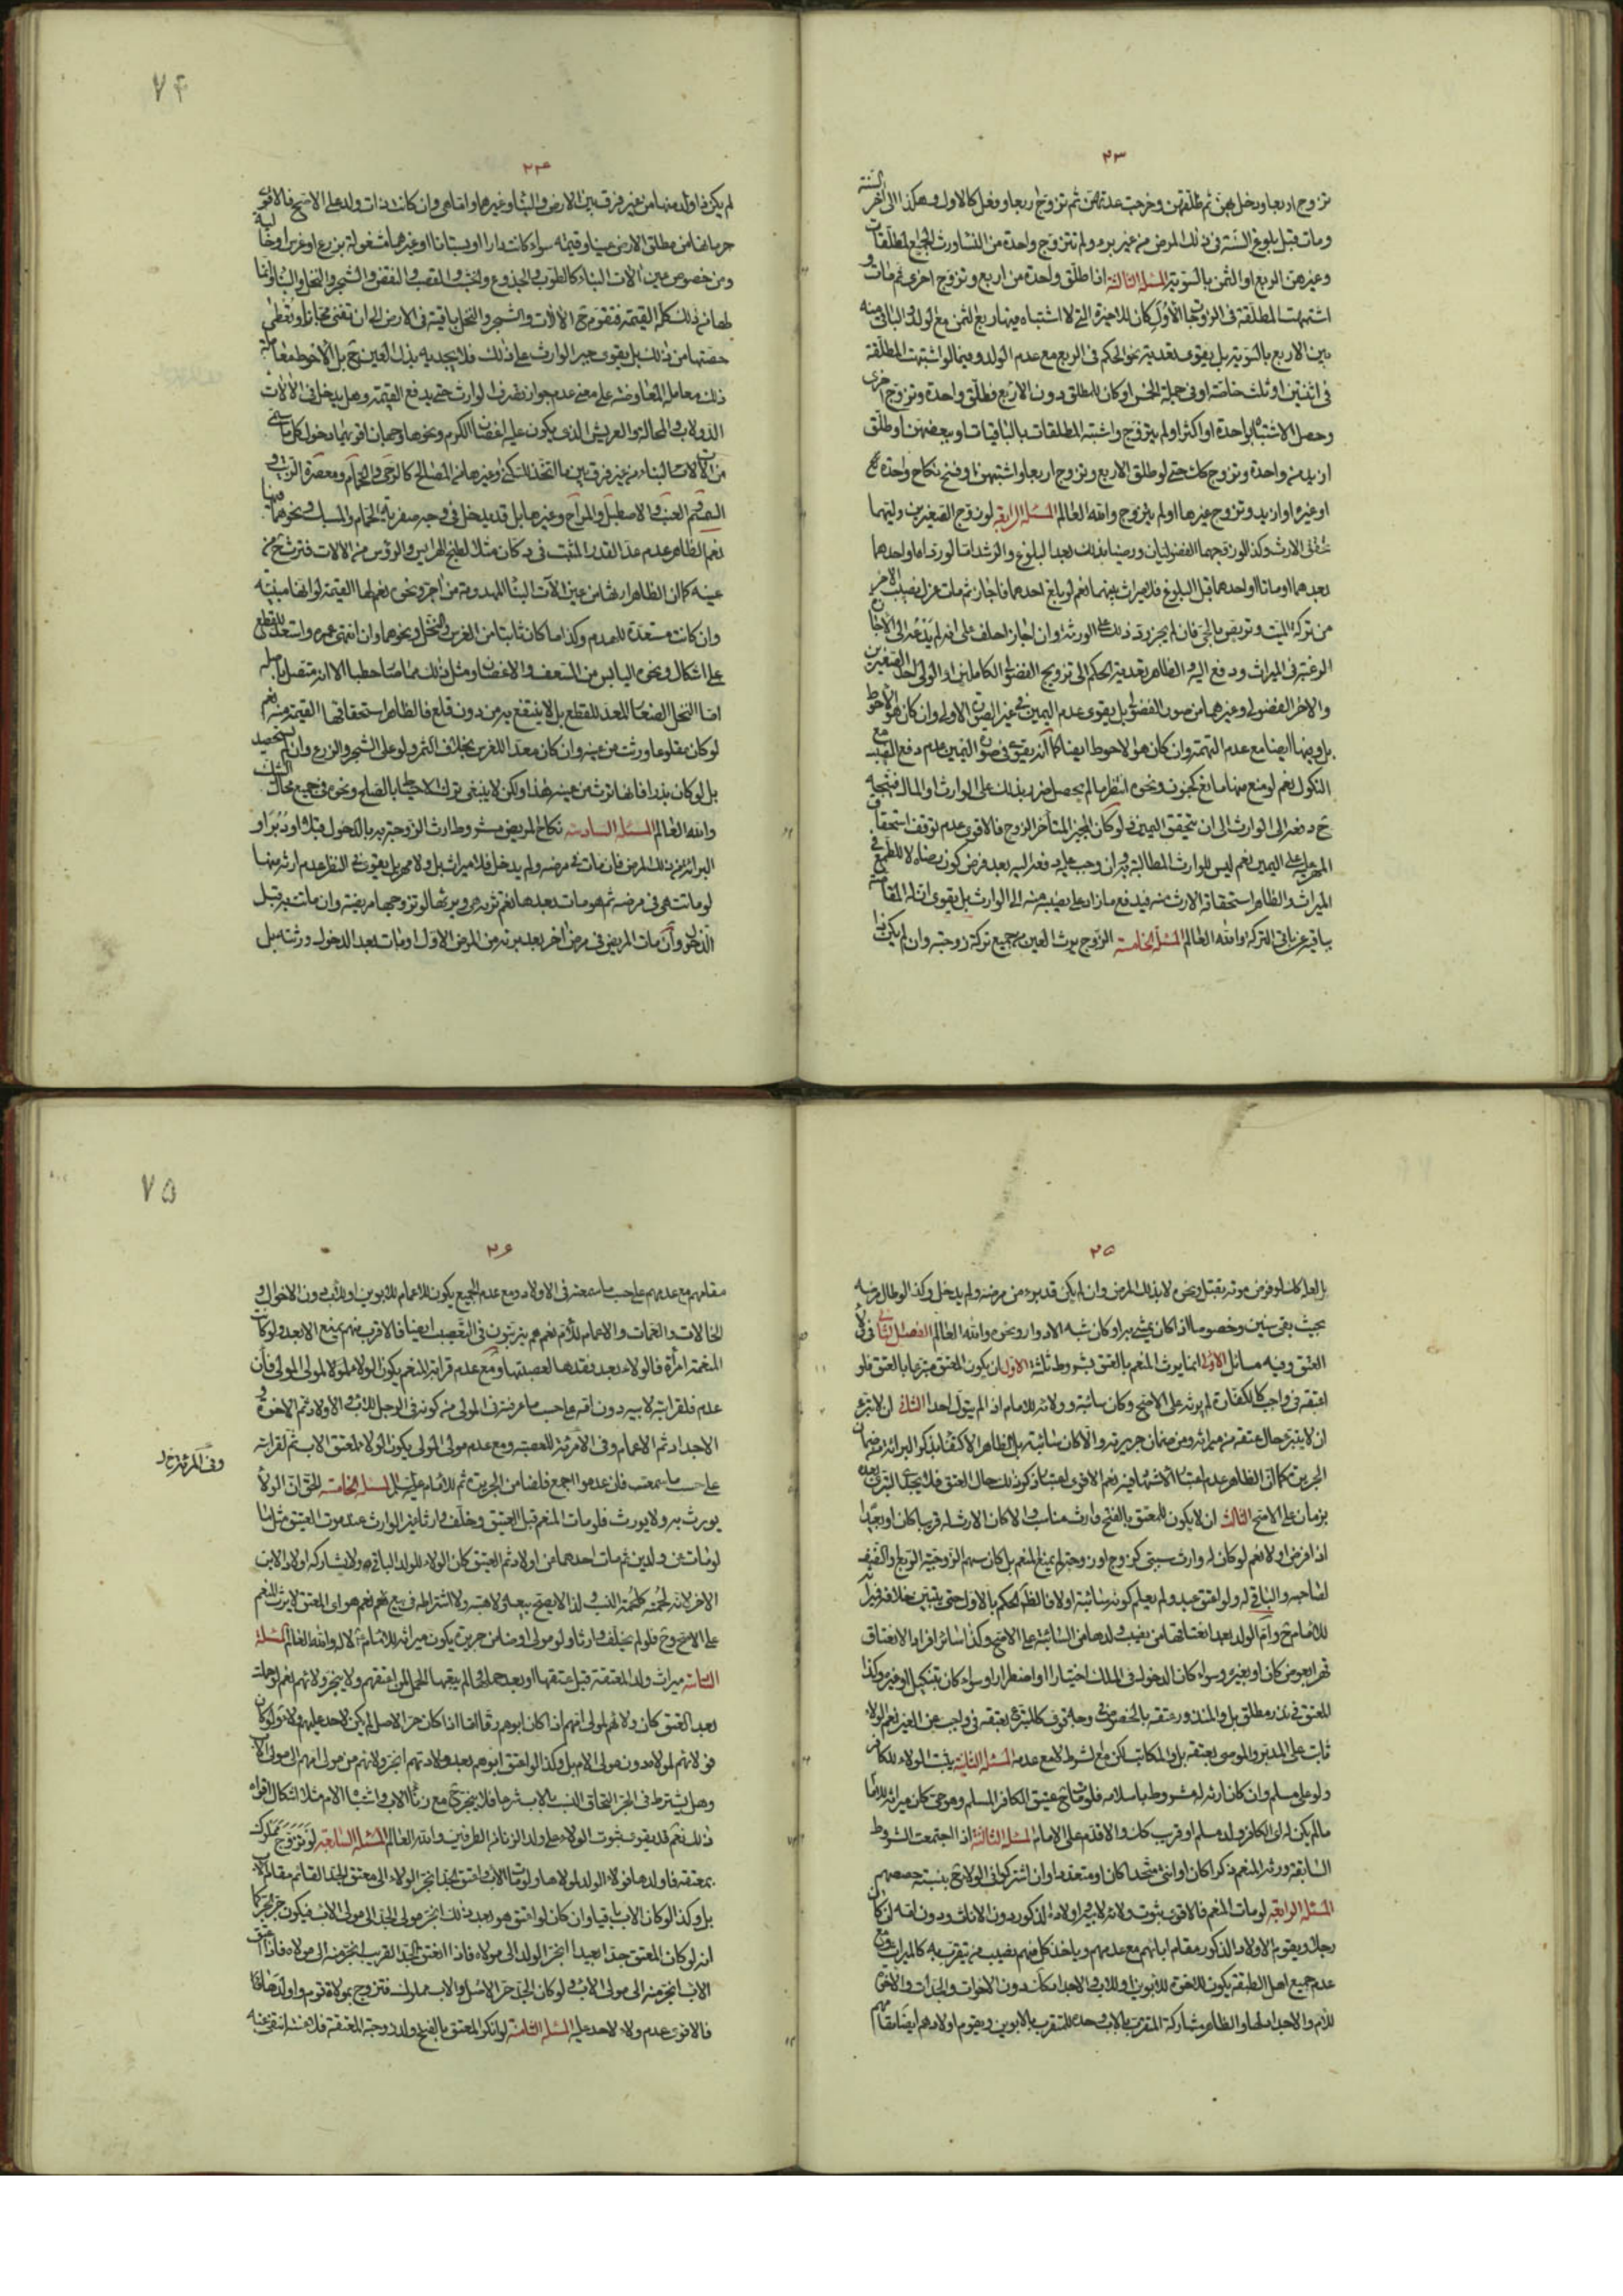 ٢٣
تزوج اربعا ودخل بهن ثم طلقهن وخرجت عدتهن ثم تزوج اربعا وفعل كالاول وهكذا الى آخر السنة
ومات قبل بلوغ السنة في ذلك المرض من غير برء ولم تتزوج واحدة من النساء ورث الجميع المطلقات
وغيرهن الربع او الثمن بالسوية المسئلة الثالثة اذا طلق واحدة من اربع وتزوج اخرى ثم مات و
اشتبهت المطلقة في الزوجات الأول كان للاخيرة التي لا اشتباه فيها ربع الثمن مع الولد والباقي منه
بين الاربع بالسوية بل يقوى تعدية نحو الحكم في الربع مع عدم الولد وفيما لو اشتبهت المطلقة
في اثنتين او ثلث خاصة او في جملة الخمس او كان للمطلق دون الاربع فطلق واحدة وتزوج اخرى
وحصل الاشتباه بواحدة او اكثر او لم يتزوج واشتبه المطلقات بالباقيات او بعضهن او طلق
ازيد من واحدة وتزوج كان حتى لو طلق الاربع وتزوج اربعا واشتبهن او فسخ نكاح واحدة
او غيره او ازيد وتزوج غيرها او لم يتزوج والله العالم المسئلة الرابعة لو زوج الصغيرين وليهما
الارث وكذا لو زوجهما الفضوليان ورضيا بذلك بعد البلوغ والرشد اما لو ردا او احدهما
بعدهما او ماتا او احدهما قبل البلوغ فلا ميراث بينهما نعم لو بلغ احدهما فاجاز ثم مات عزل نصيب الاخر
من تركة الميت وتربص بالحي فان لم يجز رد ذلك على الورثة وان اجاز احلف على انه لم يدعه الى الاجازة
الرغبة في الميراث ودفع اليه والظاهر تعدية الحكم الى تزويج الفضولي الكاملين او الولي احد الصغيرين
والاخر الفضولي وغيرهما من صور الفضولي بل يقوى عدم اليمين في غير الصورة الاولى وان كان هو الاحوط
بل وفيها ايضا مع عدم التهمة وان كان هو الاحوط ايضا كما انه يقوى في صورة اليمين عدم دفع
النكول نعم لو منع منها مانع كجنون ونحوه انتظر ما لم يحصل ضرر بذلك على الوارث او المال فيتجه
ح دفعه الى الوارث الى ان يتحقق اليمين ولو كان المجيز المتأخر الزوج فالاقوى عدم توقف استحقاق
المهر على اليمين نعم ليس للوارث المطالبة به وان وجب عليه دفعه اليه بعد فرض كون رضاه لا للطمع في
الميراث والظاهر استحقاقه الارث منه فيدفع ما زاد على نصيبه منه الى الوارث بل يقوى
باقيه عن باقي التركة والله العالم المسئلة الخامسة الزوج يرث العين من جميع تركة زوجته وان لم يكن
٧٤
٢٤
لم يكن ذا ولد منها من غير فرق بين الارض والبناء وغيرها واما هي وان كانت ذات ولد على الاصح فالاقوى
حرمانها من مطلق الارض عينا وقيمة سواء كانت دارا او بستانا او غيرهما مشغولة بزرع او غرس او خالية
ومن خصوص عين الات البناء كالطوب والجذوع والخشب والقصب والنقض والشجر والنخل والبناء وانما
لها من ذلك كله القيمة فتقوم ح الآلات والشجر والنخل باقية في الارض الى ان تفنى مجانا وتعطى
حصتها من ذلك بل يقوى جبر الوارث على ذلك فلا يجديه بذل العين ح بل الاحوط معاملة
ذلك معاملة المعاوضة على معنى عدم جواز تصرف الوارث حتى يدفع القيمة وهل يدخل في الآلات
الدولاب والمحالة والعريش الذي يكون عليه اغصان الكرم ونحوها وجهان اقويهما دخول كل ما سمي
من الآلات البناء من غير فرق بين ما اتخذ للسكنى وغيرها من المصالح كالرحى والحمام ومعصرة الزيت و
السمسم العنب والاصطبل والمراح وغيرها بل قد يدخل في وجه صفرية الحمام والمسبك ونحوهما
نعم الظاهر عدم عد القدر المثبت في دكان مثلا لطبخ الهرايس والرؤس من الآلات فترث من
عينه كما ان الظاهر ارثها من عين الآت البناء المهدومة من آجر ونحوه نعم لها القيمة لو انها مبنية
وان كانت مستعدة للهدم وكذا ما كان ثابتا من الغرس والنخل ونحوها وان انتهى عمره واستعد للقطع
على اشكال في نحو اليابس من السعف والاغصان ومثل ذلك مما صار حطبا الا انه متصل باصله
اما النخل الصغار المعد للقطع بل لا ينتفع به من دون قلع فالظاهر استحقاقها القيمة منه نعم
لو كان مقلوعا ورثت من عينه وان كان معدا للغرس بخلاف الثمر ولو على الشجر والزرع وان لم يستحصد
بل لو كان بذرا فانها ترث من عينه هذا ولكن لا ينبغي ترك الاحتياط بالصلح ونحوه في جميع محال الشك
والله العالم المسئلة السادسة نكاح المريض مشروط ارث الزوجة به بالدخول قبلا او دبرا و
البرء من ذلك المرض فان مات في مرضه ولم يدخل فلا ميراث بل ولا مهر بل يقوى في النظر عدم ارثه منها
لو ماتت هي في مرضه ثم هو مات بعدها نعم ترثه ويرثها لو تزوجها مريضة وان ماتت به قبل
الدخول وان مات المريض في مرض آخر بعد برئه من المرض الاول او مات بعد الدخول ورثته بل
٢٥
بل العدم كذلك لو فرض موته بقتل ونحوه لا بذلك المرض وان لم يكن قد برء من مرضه ولم يدخل وكذا لو طال مرضه
بحيث بقي سنين وخصوصا اذا كان يمشي به او كان شبه الادوار ونحوه والله العالم الفصل الثاني في ولاء
العتق وفيه مسائل الاولى انما يرث المنعم بالعتق بشروط ثلثة الاول ان يكون المعتق متبرعا بالعتق فلو
اعتقه في واجب كالكفارة لم يرثه على الاصح وكان سائبة وولائه للامام اذا لم يتول احدا الثاني ان لا يتبرء
ان لا يتبرء حال عتقه من ميراثه ومن ضمان جريرته والا كان سائبة بل الظاهر الاكتفاء بذكر البرائة من ضمان
الجريرة كما ان الظاهر عدم اعتبار الاشهاد فيه نعم الاقوى اعتبار ذكر ذلك حال العتق فلا يجدي التبري بعده
بزمان على الاصح الثالث ان لا يكون للمعتق بالفتح وارث مناسب والا كان الارث له قريبا كان او بعيدا
اذا فرض او لا نعم لو كان له وارث سببي كزوج او زوجة لم يمنع المنعم بل كان سهم الزوجية الربع او النصف
لصاحبه والباقي له ولو اعتق عبد ولم يعلم كونه سائبة او لا فالظاهر الحكم بالاول حتى يتبين خلافه فميراثه
للامام ح وام الولد بعد انعتاقها من نصيب ولدها من السائبة على الاصح وكذا سائر افراد الانعتاق
قهرا بعوض كان او بغيره وسواء كان الدخول في الملك اختيارا او اضطرارا وسواء كان بتنكيل او غيره وكذا
المعتق في نذر مطلق بل والمنذور عتقه بالخصوص
ثابت على المدبر والموصى بعتقه بل والمكاتب لكن مع الشرط لا مع عدمه المسئلة الثانية يثبت الولاء للكافر
ولو على مسلم وان كان ارثه له مشروط باسلامه فلو مات عتيق الكافر المسلم وهو حي كان ميراثه للامام
ما لم يكن له اي الكافر ولد مسلم او قريب كان والا قدم على الامام المسئلة الثالثة اذا اجتمعت الشروط
السابقة ورثه المنعم ذكرا كان او انثى متحدا كان او متعددا وان اشتركوا في الولاء ح بنسبة حصصهم
المسئلة الرابعة لو مات المنعم فالاقوى ثبوت ولائه لابيه واولاده الذكور دون الاناث ودون امه ان كان
رجلا ويقوم الاولاد الذكور مقام ابائهم مع عدمهم وياخذ كل منهم نصيب من يتقرب به كالميراث ومع
عدم جميع اهل الطبقة يكون للاخوة للابوين او للاب والاجداد كان دون الاخوات والجدات والاخوة
للام والاجداد لها والظاهر مشاركة المتقرب بالاب وحده للمتقرب بالابوين ويقوم اولادهم ايضا مقامهم
٧٥
٢٦
مقامهم مع عدمهم على حسب ما سمعته في الاولاد ومع عدم الجميع يكون للاعمام للابوين او للاب دون الاخوال و
الخالات والعمات والاعمام للام نعم هم يترتبون في التعصيب ايضا فالاقرب منهم يمنع الابعد ولو كان
المنعمة امرأة فالولاء بعد فقدها لعصبتها ومع عدم قرابة المنعم يكون الولاء لمولاه لمولى المولى فان
عدم فلقرابته لابيه دون امه على حسب ما عرفته في المولى من كونه في الرجل للاب والاولاد ثم الاخوة و
الاجداد ثم الاعمام وفي الامرئة للعصبة ومع عدم مولى المولى يكون الولاء لمعتق الاب ثم لقرابته
على حسب ما سمعت فلو عدموا اجمع فلضامن الجريرة ثم للامام عليه السلام المسئلة الخامسة الحق ان الولاء
يورث به ولا يورث فلو مات المنعم قبل العتيق وخلف وارثا غير الوارث عند موت العتيق مثل ما
لو مات عن ولدين ثم مات احدهما عن اولاد ثم العتيق كان الولاء للولد الباقي ولا يشاركه اولاد الابن
الاخر لانه لحمة كلحمة النسب ولذا لا يصح بيعه ولا هبته ولا اشتراطه في بيع نعم هو اي المعتق لا يرث المنعم
على الاصح وح فلو لم يخلف وارثا ولو مولى او ضامن جريرة يكون ميراثه للامام لا له والله العالم المسئلة
السادسة ميراث ولد المعتقة قبل عتقها او بعد حملها ما لم يتبعها الحمل لمن اعتقهم ولا ينجر ولائهم نعم لو حملت
بعد العتق كان ولائهم لمولى امهم اذا كان ابوهم رقا اما اذا كان حر الاصل لم يكن لاحد عليهم ولاء ولو كان
فولائهم لمولاه دون مولى الام بل وكذا لو اعتق ابوهم بعد ولادتهم انجر ولائهم من مولى امهم الى مولى الاب
وهل يشترط في الجر التحاق النسب بالاب شرعا فلا ينجر ح مع زنا الاب واشتباه الام مثلا اشكال اقواه
ذلك نعم قد يقوى ثبوت الولاء على ولد الزنا من الطرفين والله العالم المسئلة السابعة لو تزوج مملوك
بمعتقة فاولدها فولاء الولد لمولاها ولو مات الاب واعتق الجد انجر الولاء الى معتق الجد القائم مقام الاب
بل وكذا لو كان الاب باقيا وان كان لو اعتق هو بعد ذلك انجر من مولى الجد الى مولى الاب فيكون جر
انه لو كان المعتق جدا بعيدا انجر الولاء الى مولاه فاذا اعتق الجد القريب انجر منه الى مولاه فاذا اعتق
الاب انجر منه الى مولى الاب ولو كان الجد حر الاصل والاب مملوك فتزوج بمولاة قوم واولدها
فالاقوى عدم ولاء لاحد عليه المسئلة الثامنة لو انكر المعتق بالفتح ولد زوجته المعتقة فلاعنها انتفى عنه
وفي المرئة خ ل